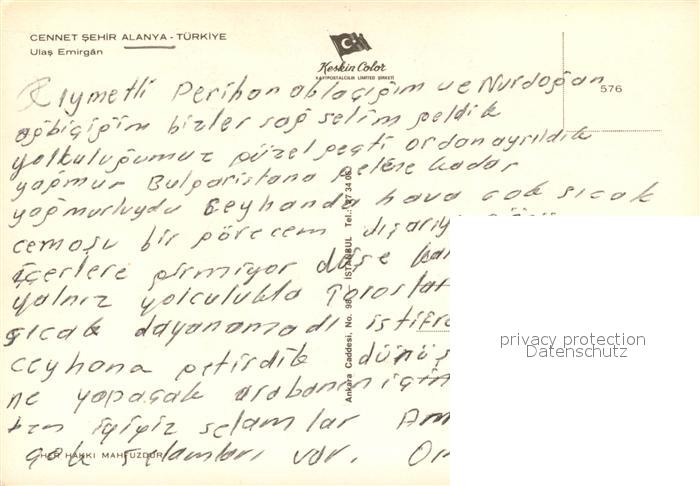 CENNET ŞEHİR ALANYA - TÜRKİYE
Ulaş Emirgân
Keskin Color
KARTPOSTALCILIK LIMITED ŞİRKETİ
576
Kıymetli Perihan ablacığım ve Nurdoğan
ağbiciğim bizler sağ selim geldik
yolculuğumuz güzel geçti ordan ayrıldık
yağmur Bulgaristana gelene kadar
yağmurluydu Ceyhanda hava çok sıcak
bir görecem dışarıya
içerlere girmiyor düşe
yalnız yolculukta Toroslar
sıcak dayanamadı istifra
ceyhana getirdik dönüş
ne yapacak arabanın için
ben iyiyiz selamlar
çok selamları var.
Ankara Caddesi. No. 98 İSTANBUL Tel.: 27 34 08
HER HAKKI MAHFUZDUR
privacy protection
Datenschutz